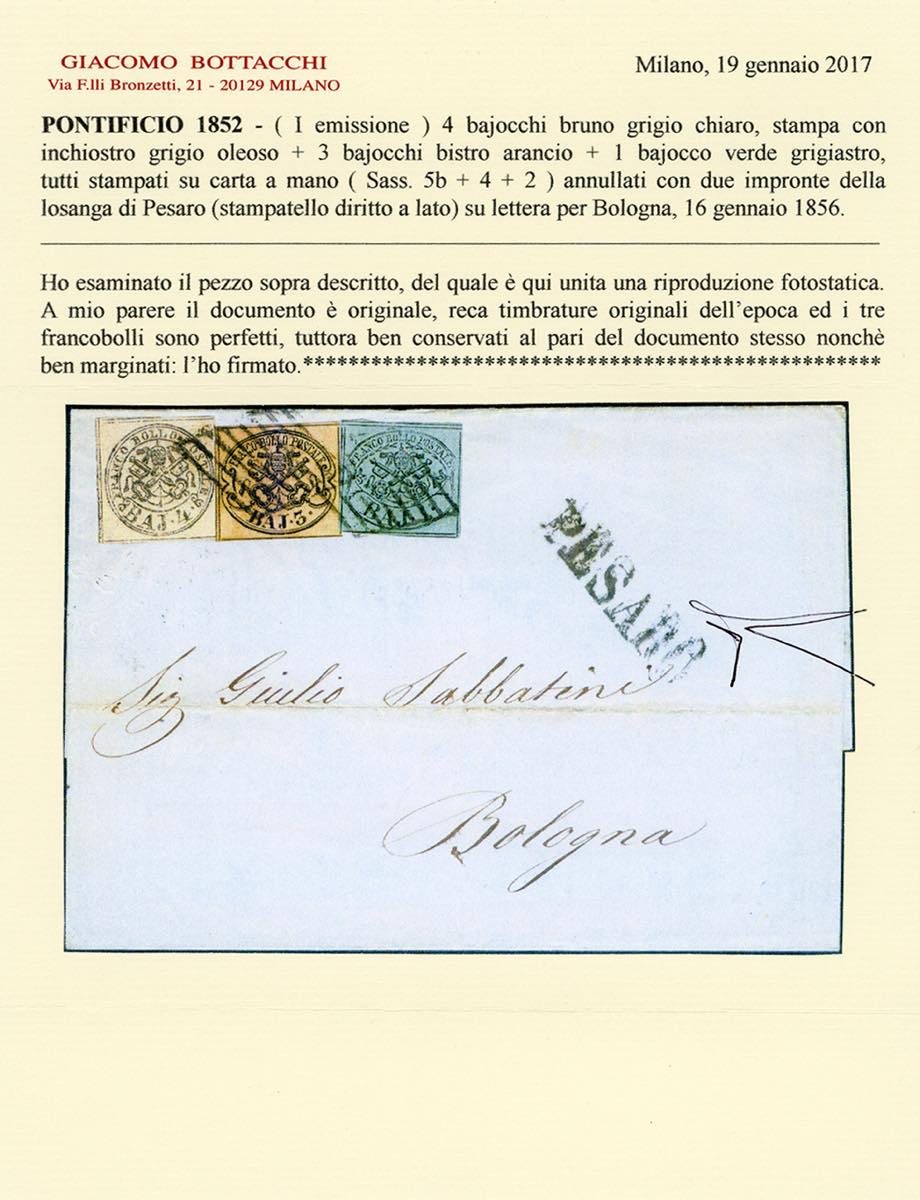 GIACOMO BOTTACCHI
Via F.lli Bronzetti, 21 - 20129 MILANO
Milano, 19 gennaio 2017
PONTIFICIO 1852 - ( I emissione ) 4 bajocchi bruno grigio chiaro, stampa con
inchiostro grigio oleoso + 3 bajocchi bistro arancio + 1 bajocco verde grigiastro,
tutti stampati su carta a mano ( Sass. 5b + 4 + 2 ) annullati con due impronte della
losanga di Pesaro (stampatello diritto a lato) su lettera per Bologna, 16 gennaio 1856.
Ho esaminato il pezzo sopra descritto, del quale è qui unita una riproduzione fotostatica.
A mio parere il documento è originale, reca timbrature originali dell'epoca ed i tre
francobolli sono perfetti, tuttora ben conservati al pari del documento stesso nonchè
ben marginati: l'ho firmato.****************************************************
FRANCO BOLLO POSTALE
BAJ.4.
FRANCO BOLLO POSTALE
BAJ.3.
FRANCO BOLLO POSTALE
BAJ.1.
PESARO
Sig Giulio Sabbatini
Bologna